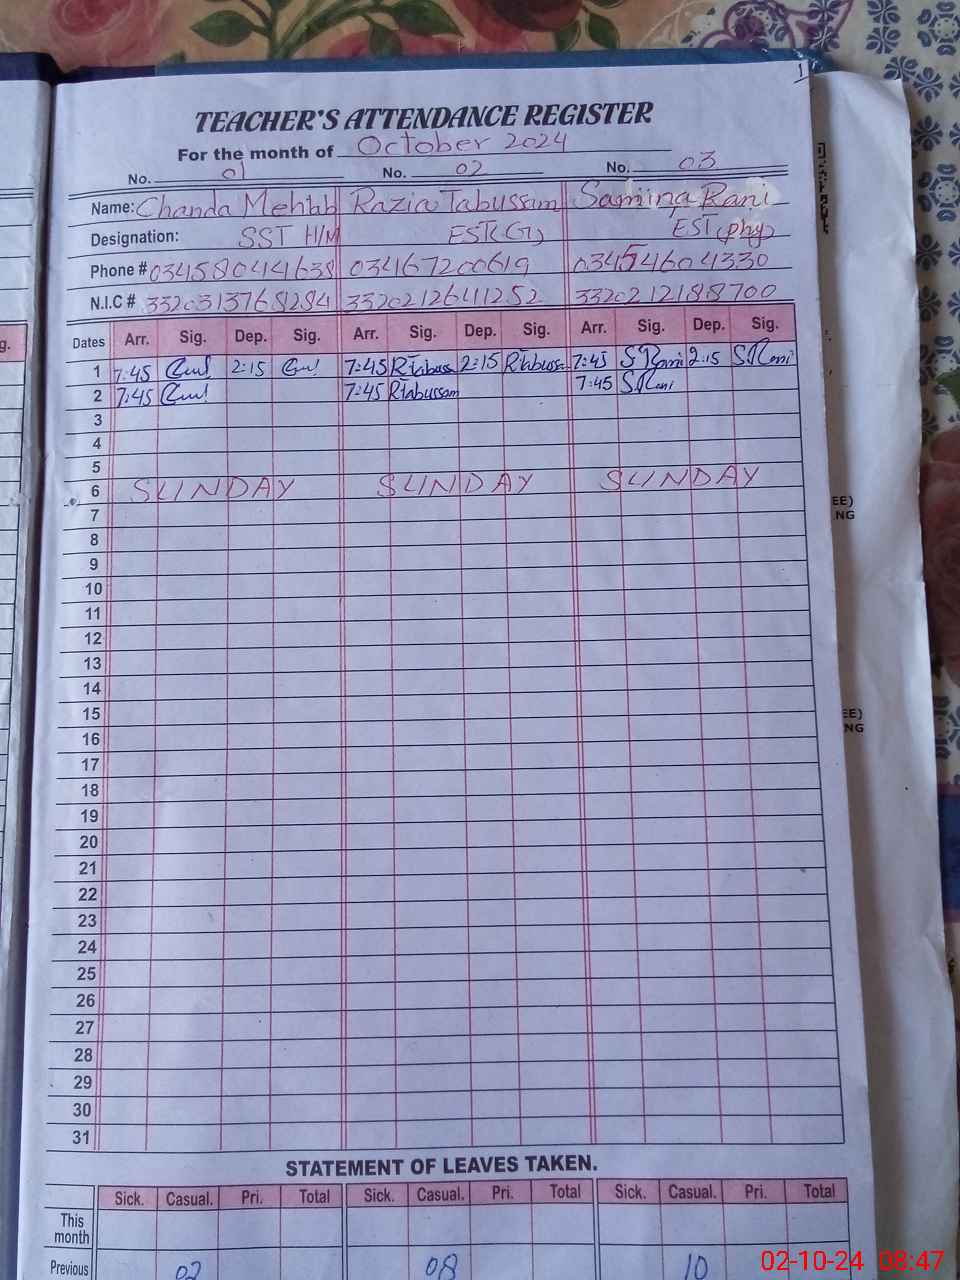 1
TEACHER'S ATTENDANCE REGISTER
For the month of October 2024
No. 01 No. 02 No. 03
Name: Chanda Mehbb Razia Tabussam Samina Rani
Designation: SST H/M EST(G) EST(phy)
Phone # 03458044638 03467200619 03454604330
N.I.C # 3320313768284 3320212641252 3320212188700
Dates Arr. Sig. Dep. Sig. Arr. Sig. Dep. Sig. Arr. Sig. Dep. Sig.
1 7:45 2:15 7:45 RTabuss 2:15 RTabuss 7:45 SRani 2:15 SRani
2 7:45 7:45 RTabussam 7:45 SRani
3
4
5
6 SUNDAY SUNDAY SUNDAY
7
8
9
10
11
12
13
14
15
16
17
18
19
20
21
22
23
24
25
26
27
28
29
30
31
STATEMENT OF LEAVES TAKEN.
Sick. Casual. Pri. Total Sick. Casual. Pri. Total Sick. Casual. Pri. Total
This month
Previous 02 08 10
g.
EE)
NG
EE)
NG
02-10-24 08:47